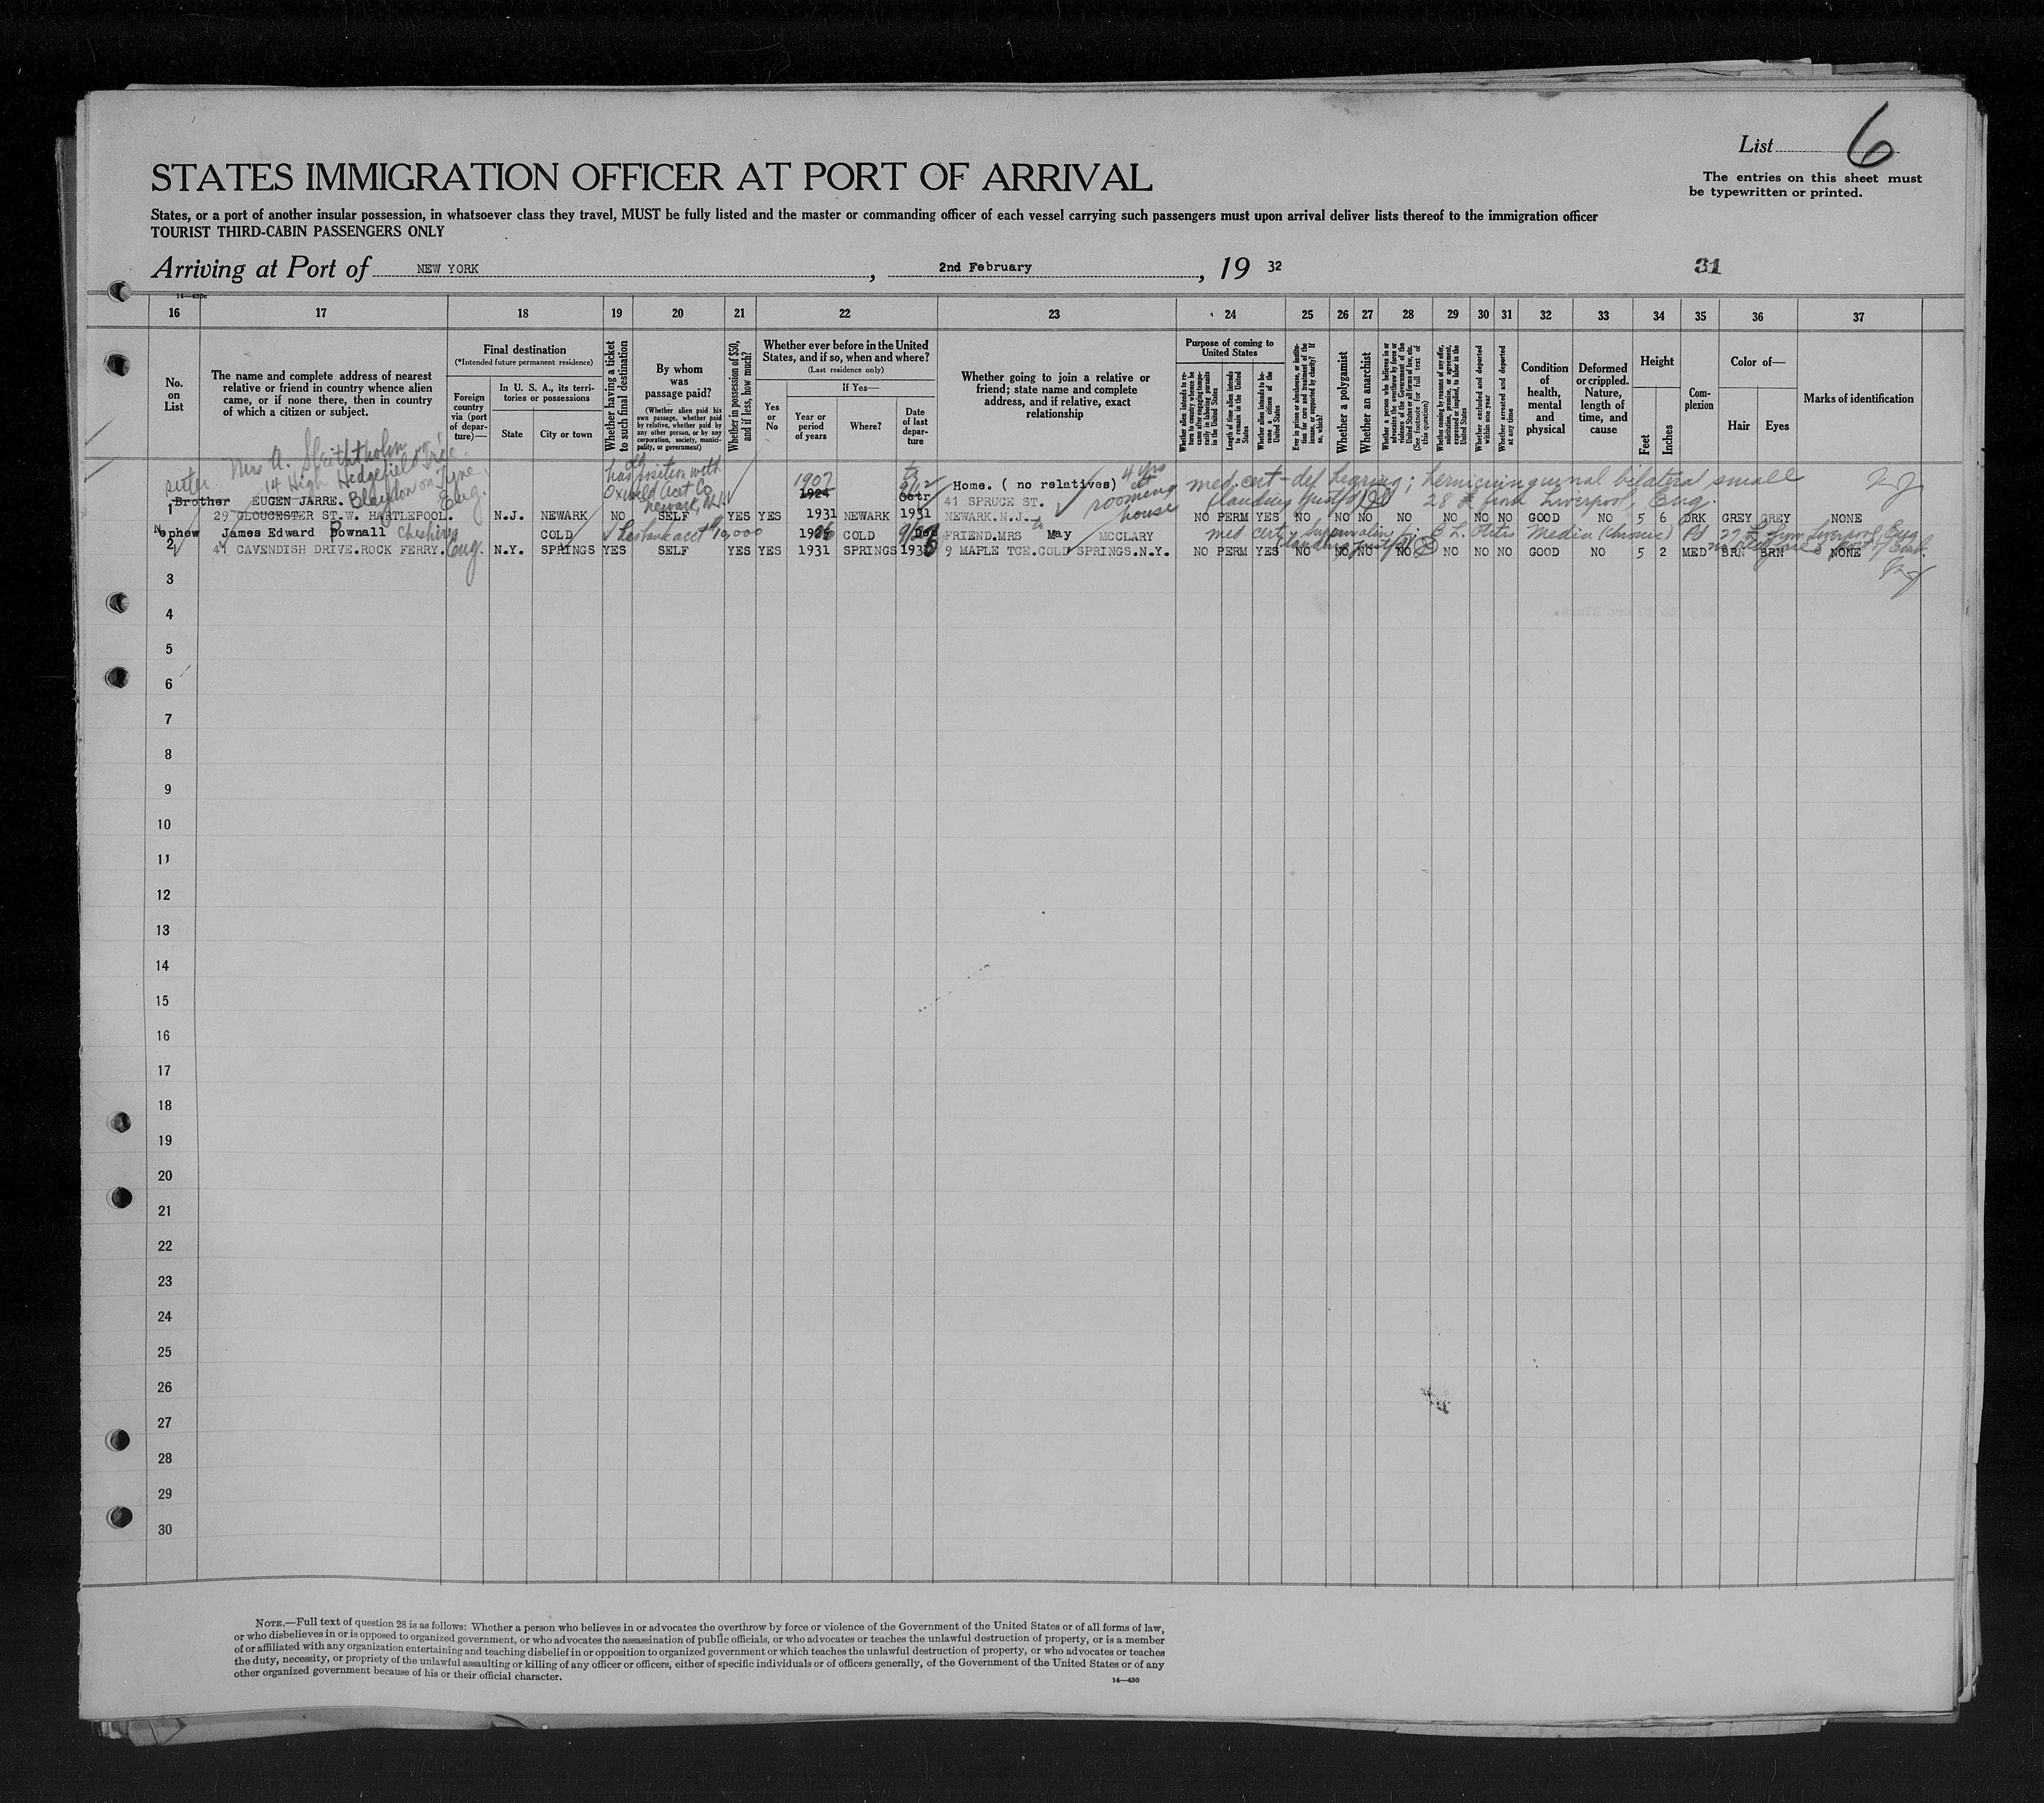 List 6
The entries on this sheet must
be typewritten or printed.
STATES IMMIGRATION OFFICER AT PORT OF ARRIVAL
States, or a port of another insular possession, in whatsoever class they travel, MUST be fully listed and the master or commanding officer of each vessel carrying such passengers must upon arrival deliver lists thereof to the immigration officer
TOURIST THIRD-CABIN PASSENGERS ONLY
Arriving at Port of NEW YORK, 2nd February, 19 32
31
16 17 18 19 20 21 22 23 24 25 26 27 28 29 30 31 32 33 34 35 36 37
No. on List
The name and complete address of nearest
relative or friend in country whence alien
came, or if none there, then in country
of which a citizen or subject.
Final destination
(*Intended future permanent residence)
Foreign country via (port of departure)—
In U. S. A., its territories or possessions
State
City or town
Whether having a ticket to such final destination
By whom was passage paid?
(Whether alien paid his own passage, whether paid by relative, whether paid by any other person, or by any corporation, society, municipality, or government)
Whether in possession of $50, and if less, how much?
Whether ever before in the United States, and if so, when and where?
(Last residence only)
Yes or No
If Yes—
Year or period of years
Where?
Date of last departure
Whether going to join a relative or
friend; state name and complete
address, and if relative, exact
relationship
Purpose of coming to United States
Whether alien intends to return to country whence he came after engaging temporarily in laboring pursuits in the United States
Length of time alien intends to remain in the United States
Whether alien intends to become a citizen of the United States
Ever in prison or almshouse, or institution for care and treatment of the insane, or supported by charity? If so, which?
Whether a polygamist
Whether an anarchist
Whether a person who believes in or advocates the overthrow by force or violence of the Government of the United States or all forms of law, etc. (See footnote for full text of this question)
Whether coming by reasons of any offer, solicitation, promise, or agreement, expressed or implied, to labor in the United States
Whether excluded and deported within one year
Whether arrested and deported at any time
Condition of health, mental and physical
Deformed or crippled. Nature, length of time, and cause
Height
Feet
Inches
Complexion
Color of—
Hair
Eyes
Marks of identification
sister Mrs A.
14 High Hedgefield
Blaydon on Tyne, Eng.
has position with
Oxweld Acet Co
Newark, N.J.
1907
4 yrs at rooming house
med. cert - def hearing; hernia inguinal bilateral small
28 from Liverpool, Eng.
Brother EUGEN JARRE. 1924 Octr Home. ( no relatives)
1 29 GLOUCESTER ST.W. HARTLEPOOL. N.J. NEWARK NO SELF YES YES 1931 NEWARK 1931 41 SPRUCE ST. NEWARK.N.J. NO PERM YES NO NO NO NO NO NO NO GOOD NO 5 6 DRK GREY GREY NONE
Nephew James Edward Pownall Cheshire COLD has bank acct 10,000 COLD Dec FRIEND.MRS May MCCLARY
med. cert. Otitis Media (Chronic) from Liverpool Eng
2 41 CAVENDISH DRIVE.ROCK FERRY. Eng. N.Y. SPRINGS YES SELF YES YES 1931 SPRINGS 9 MAPLE TCE.COLD SPRINGS.N.Y. NO PERM YES NO NO NO NO NO NO NO GOOD NO 5 2 MED BRN BRN NONE
3
4
5
6
7
8
9
10
11
12
13
14
15
16
17
18
19
20
21
22
23
24
25
26
27
28
29
30
NOTE.—Full text of question 28 is as follows: Whether a person who believes in or advocates the overthrow by force or violence of the Government of the United States or of all forms of law,
or who disbelieves in or is opposed to organized government, or who advocates the assassination of public officials, or who advocates or teaches the unlawful destruction of property, or is a member
of or affiliated with any organization entertaining and teaching disbelief in or opposition to organized government or which teaches the unlawful destruction of property, or who advocates or teaches
the duty, necessity, or propriety of the unlawful assaulting or killing of any officer or officers, either of specific individuals or of officers generally, of the Government of the United States or of any
other organized government because of his or their official character.
14—430